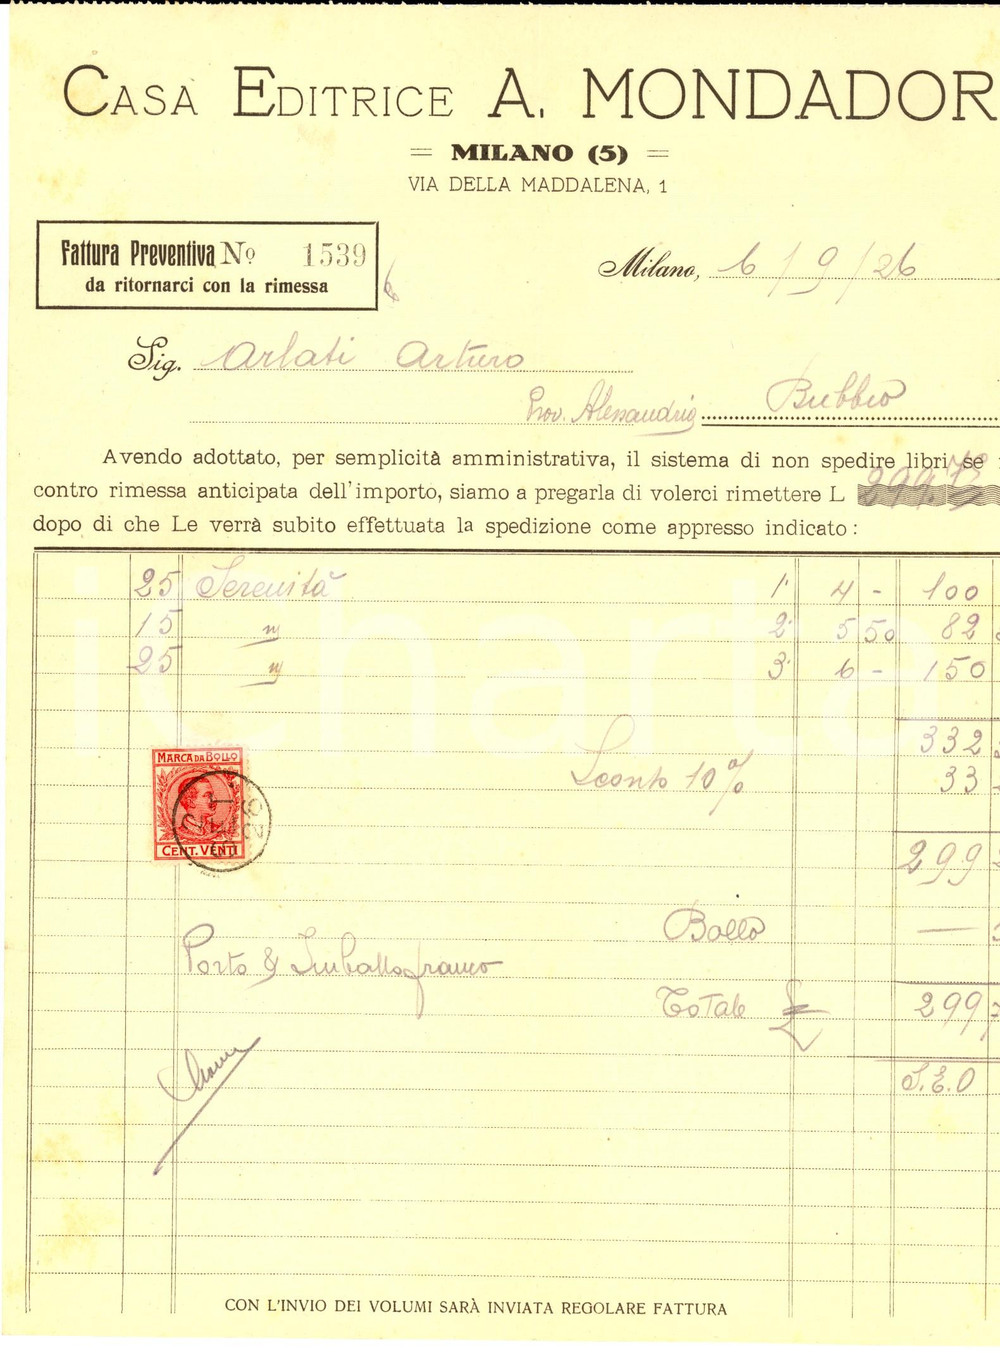 CASA EDITRICE A. MONDADOR
MILANO (5)
VIA DELLA MADDALENA, 1
Fattura Preventiva No 1539
da ritornarci con la rimessa
Milano, 6/9/26
Sig. Arlati Arturo
Prov. Alessandria Bubbio
Avendo adottato, per semplicità amministrativa, il sistema di non spedire libri se
contro rimessa anticipata dell'importo, siamo a pregarla di volerci rimettere L 299.73
dopo di che Le verrà subito effettuata la spedizione come appresso indicato:
25 Serenità 1ª 4 - 100
15 " 2ª 5 50 82
25 " 3ª 6 - 150
332
Sconto 10% 33
MARCA DA BOLLO
CENT. VENTI
299
Bollo —
Porto & Imballo franco
Totale £ 299
S.E.O
CON L'INVIO DEI VOLUMI SARÀ INVIATA REGOLARE FATTURA